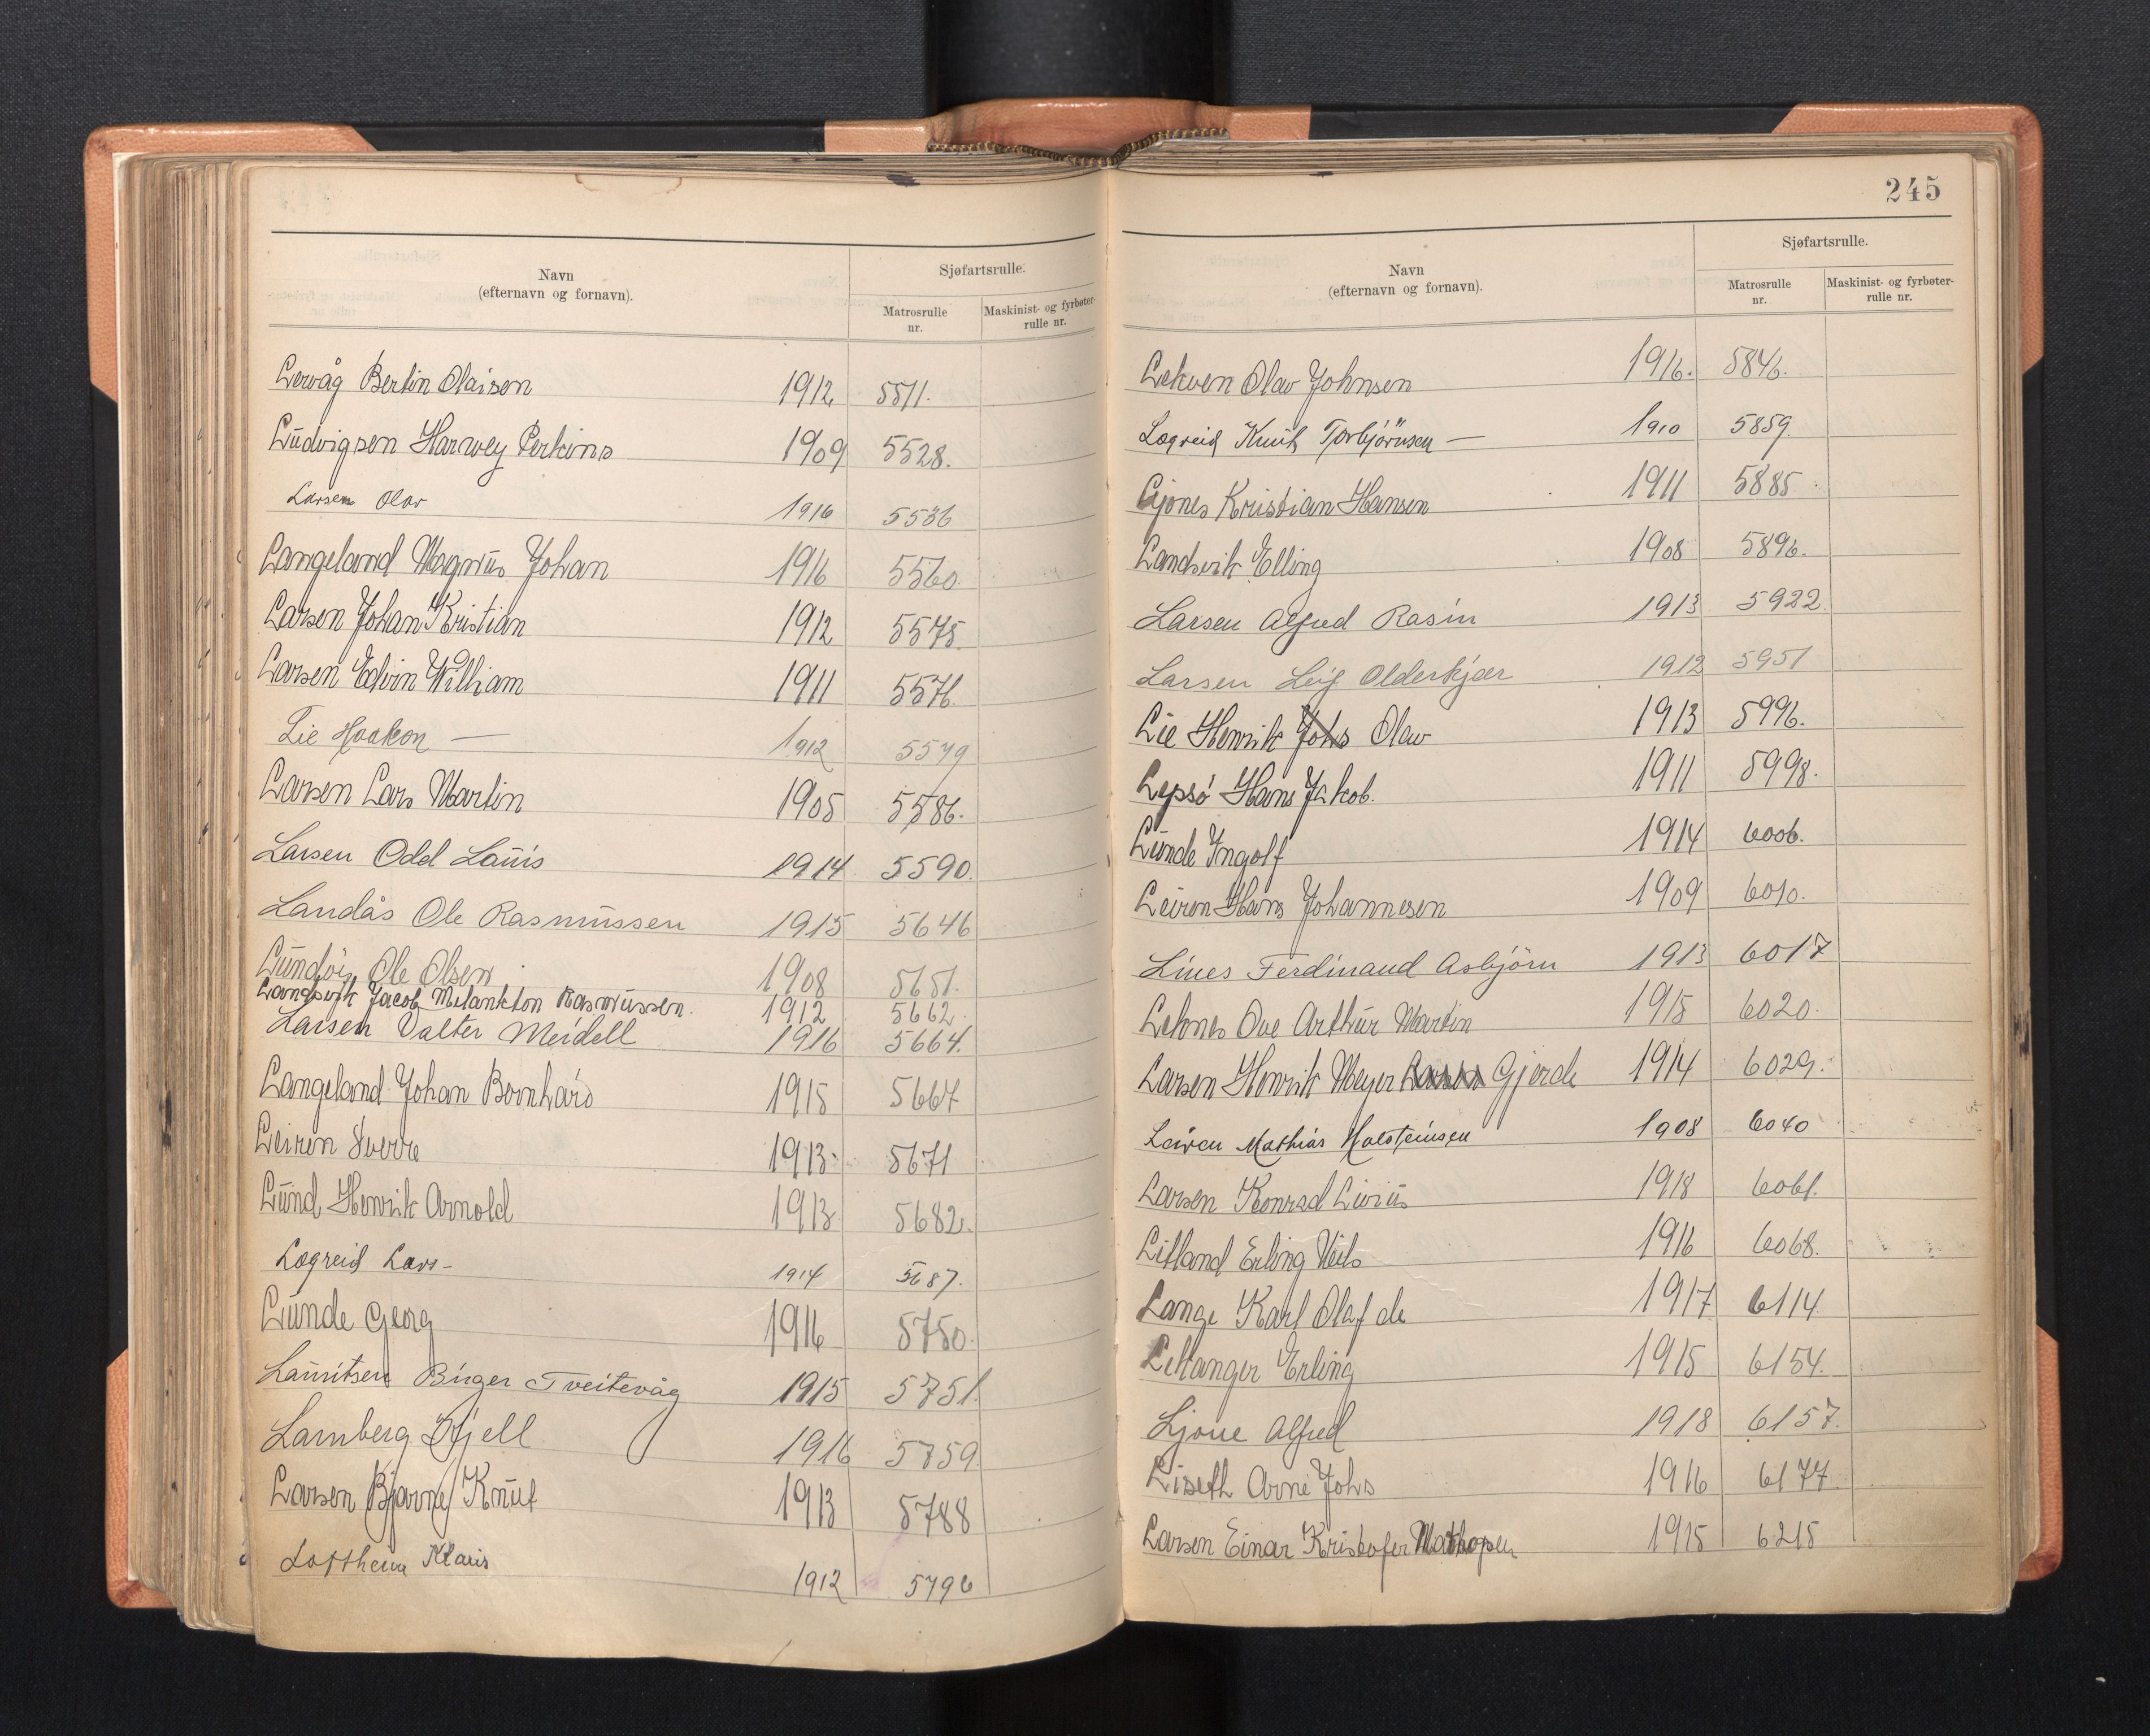 Navn
(efternavn og fornavn).
Sjøfartsrulle.
Matrosrulle
nr.
Maskinist- og fyrbøter-
rulle nr.
Lervåg Bertin Olaisen 1912 5511.
Ludvigsen Harvey Perkins 1909 5528.
Larsen Olav 1916 5536
Langeland Magnus Johan 1916 5560.
Larsen Johan Kristian 1912 5575.
Larsen Edvin William 1911 5576.
Lie Haakon — 1912 5579
Larsen Lars Martin 1905 5586.
Larsen Odd Lauis 1914 5590.
Landås Ole Rasmussen 1915 5646
Ole Olsen 1908 5651.
Landsvik Jacob Melankton Rasmussen. 1912 5662.
Larsen Valter Meidell 1916 5664.
Langeland Johan Bernhard 1915 5667
Leiren Sverre 1913. 5671
Lund Henrik Arnold 1913 5682.
Lægreid Lars - 1914 5687.
Lunde Georg 1916 5750.
Lauritsen Birger Tveitevåg 1915 5751.
Lamberg Kjell 1916 5759
Larsen Bjarne Knut 1913 5788
Loftheim Klaus 1912 5796
245
Navn
(efternavn og fornavn).
Sjøfartsrulle.
Matrosrulle
nr.
Maskinist- og fyrbøter-
rulle nr.
Lekven Olav Johnsen 1916. 5846.
Lægreid Knut Torbjörnsen — 1910 5859.
Ljones Kristian Hansen 1911 5885
Landsvik Elling 1908 5896.
Larsen Alfred Rasin 1913 5922.
Larsen Leif Olderkjær 1912 5951
Lie Henrik Johs Olav 1913 5996.
Lepsø Hans Jakob. 1911 5998.
Lunde Ingolf 1914 6006.
Leiren Hans Johannesen 1909 6010.
Lines Ferdinand Asbjörn 1913 6017
Leknes Ove Arthur Martin 1915 6020.
Larsen Henrik Meyer Larsen Gjerde 1914 6029.
Leiren Mathias Halsteinsen 1908 6040
Larsen Konrad Livius 1918 6061.
Litland Erling Nils 1916 6068.
Lange Karl Olaf de 1917 6114
Leitanger Erling 1915 6154.
Ljone Alfred 1918 6157.
Liseth Arne Johs 1916 6177.
Larsen Einar Kristofer Mathopen 1915 6215